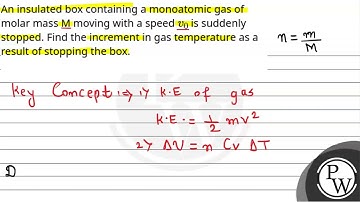 An insulated box containing a monoatomic gas of
molar mass M moving with a speed v₀ is suddenly
stopped. Find the increment in gas temperature as a
result of stopping the box.
n = m/M
Key Concept :⇒ 1) K.E of gas
K.E. = 1/2 mv²
2) ΔU = n Cv ΔT
D
PW